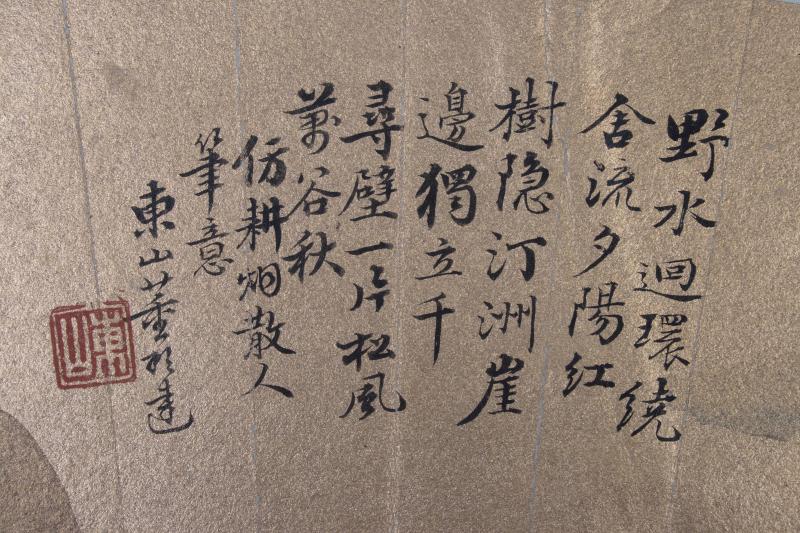 野水迴環繞
舍流夕陽紅
樹隐汀洲崖
邊獨立千
尋壁一片松風
萬谷秋
仿耕烟散人
筆意
東山董邦達
東山